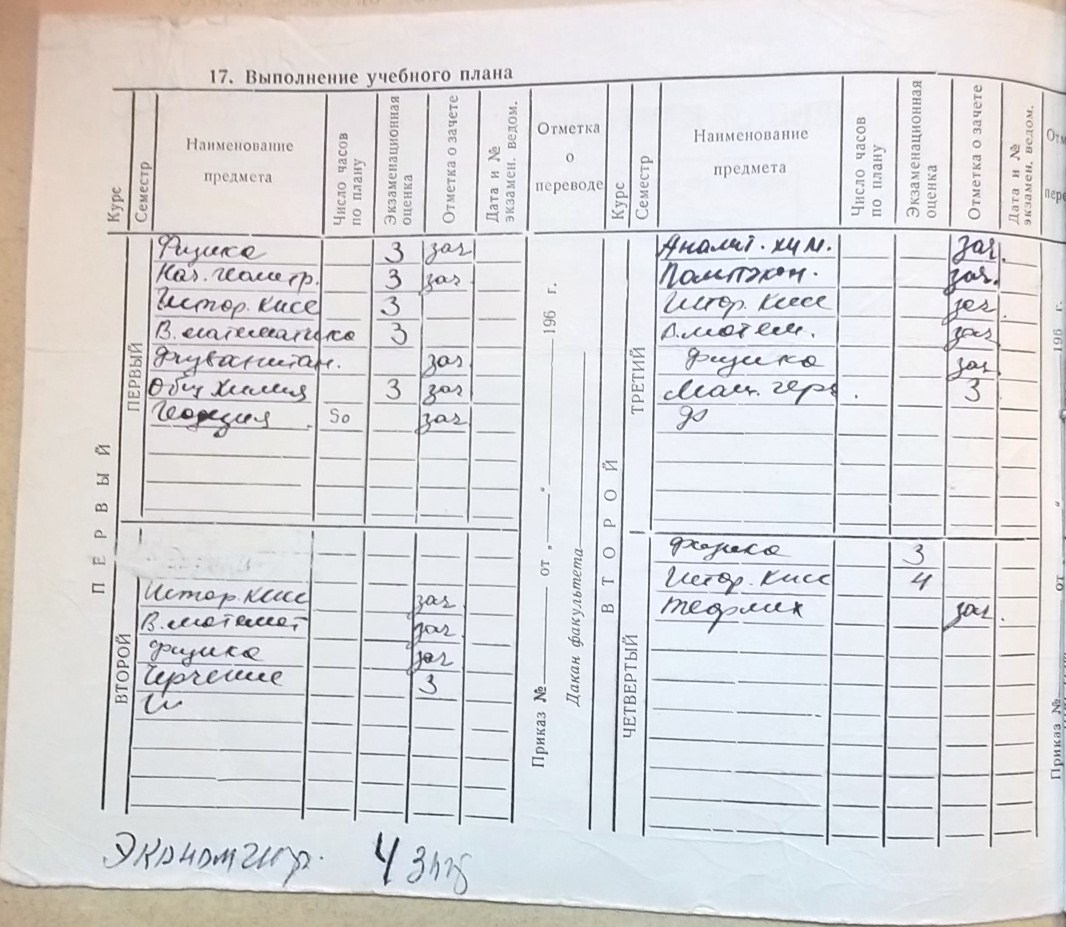 17. Выполнение учебного плана
Курс
Семестр
Наименование предмета
Число часов по плану
Экзаменационная оценка
Отметка о зачете
Дата и № экзамен. ведом.
Отметка о переводе
ПЕРВЫЙ
ПЕРВЫЙ
Физика 3 зач
Нач. геометр. 3 зач
Истор. КПСС 3
В. математика 3
зач
Общ химия 3 зач
Геодезия 50 зач
ВТОРОЙ
Истор. КПСС зач
В. математ зач
Физика зач
Черчение 3
Приказ № от „ “ 196 г.
Дакан факультета
Курс
Семестр
Наименование предмета
Число часов по плану
Экзаменационная оценка
Отметка о зачете
Дата и № экзамен. ведом.
ВТОРОЙ
ТРЕТИЙ
Аналит. хим. зач.
Политэкон. зач.
Истор. КПСС зач.
В. матем. зач
Физика зач
Маш. черч. 3
ЧЕТВЕРТЫЙ
Физика 3
Истор. КПСС 4
Теормех зач.
Приказ № от „ 196 г.
4